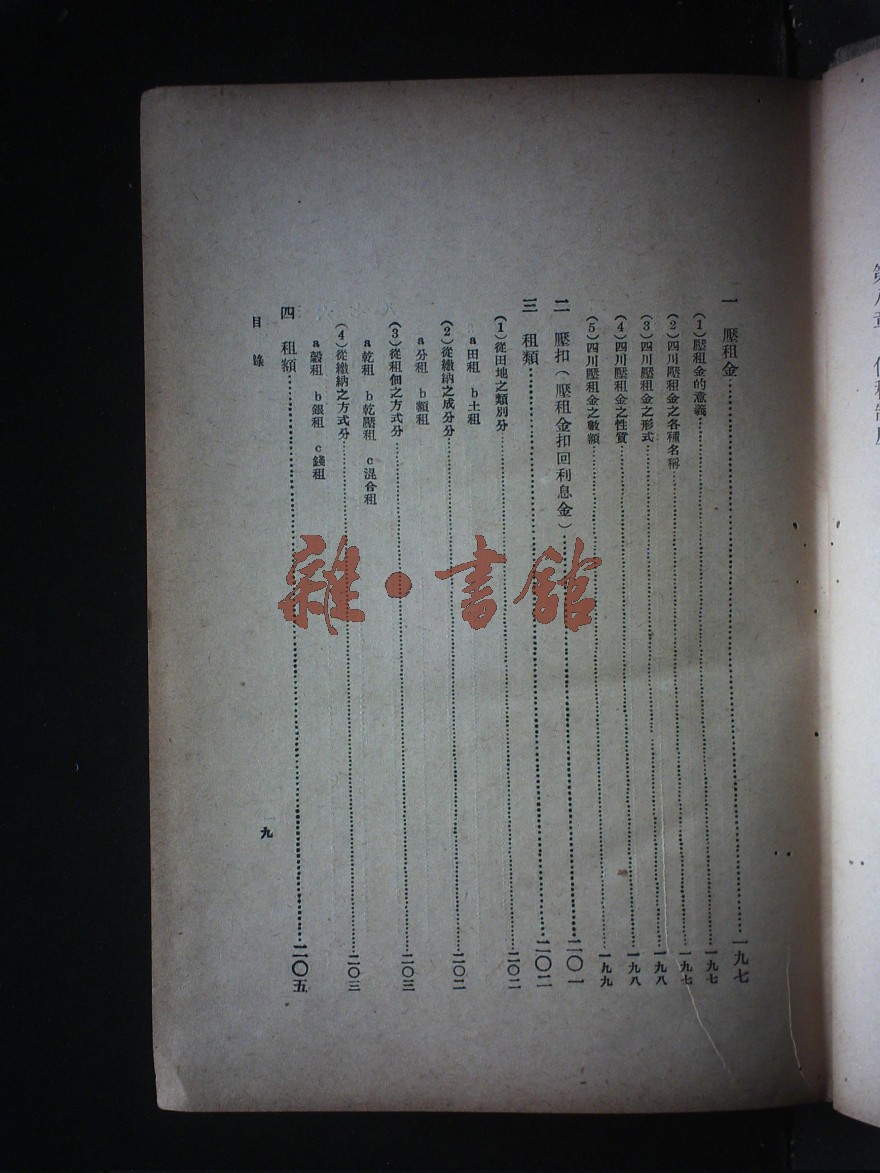 一　壓租金……一九七
(1)壓租金的意義……一九七
(2)四川壓租金之各種名稱……一九七
(3)四川壓租金之形式……一九八
(4)四川壓租金之性質……一九八
(5)四川壓租金之數額……一九九
二　壓扣(壓租金扣回利息金)……二〇一
三　租類……二〇二
(1)從田地之類別分……二〇二
a田租　b土租
(2)從繳納之成分分……二〇二
a分租　b額租
(3)從租佃之方式分……二〇三
a乾租　b乾壓租　c混合租
(4)從繳納之方式分……二〇三
a穀租　b銀租　c錢租
四　租額……二〇五
目錄
九
雜·書館